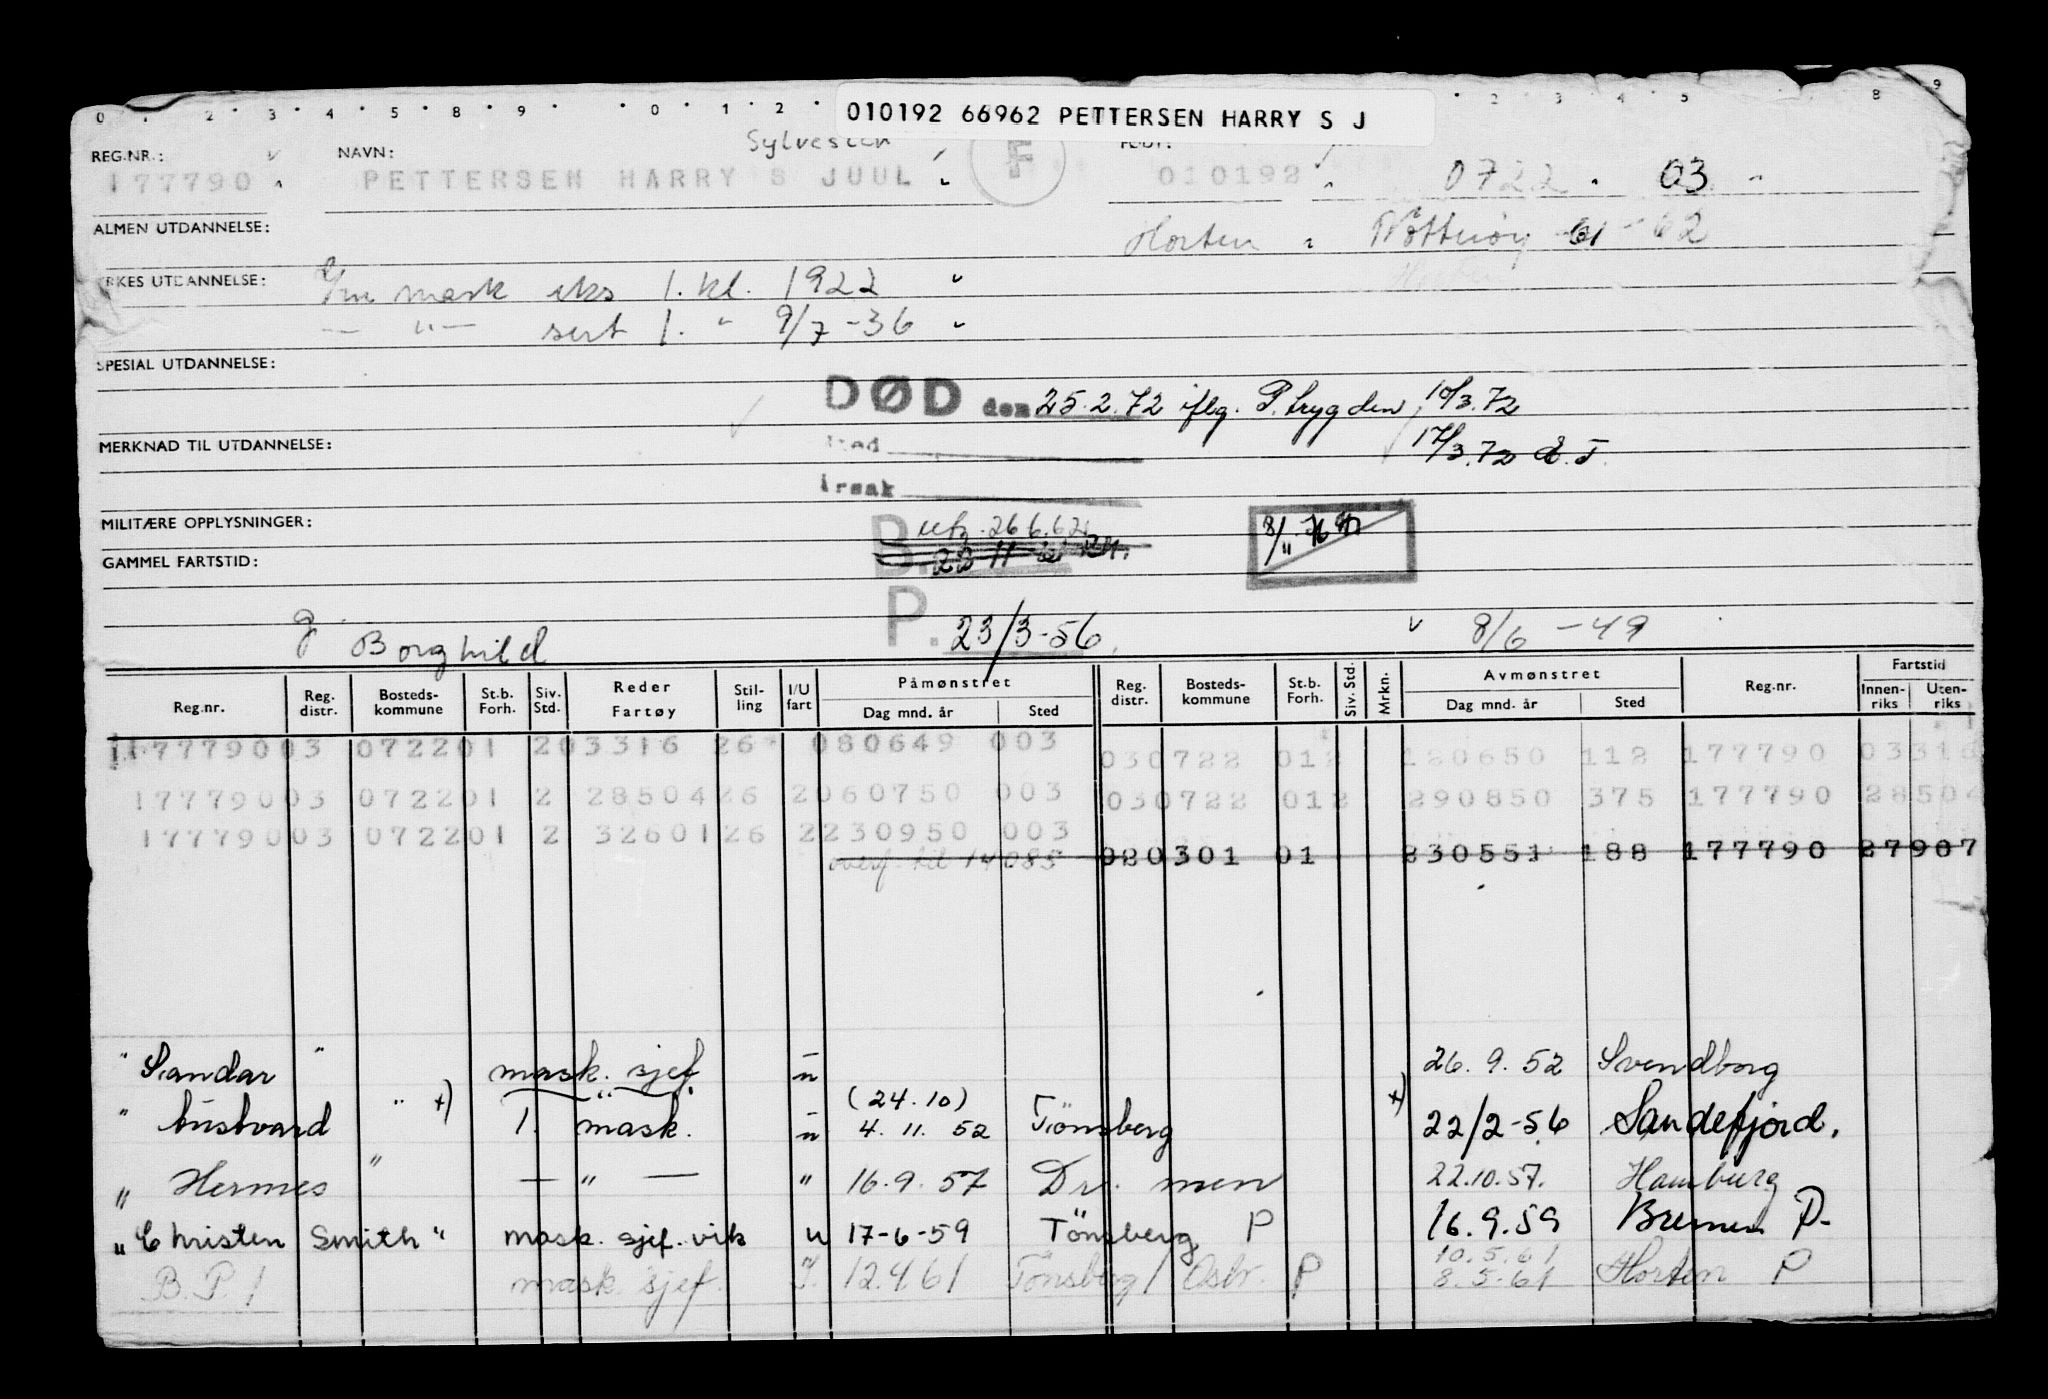 0 . 2 . 3 . 4 . 5 . 8 . 9 . . 0 . 1 . 2 . . 2 3 4 5 8 9
010192 66962 PETTERSEN HARRY S J
Sylvester
REG.NR.: NAVN: FØDT:
177790 PETTERSEN HARRY S JUUL F 010192 0722 03
ALMEN UTDANNELSE: Horten Nøtterøy 61-62
YRKES UTDANNELSE: mask eks 1. kl. 1922
— " — sert 1. " 9/7-36
SPESIAL UTDANNELSE:
DØD den 25.2.72 iflg. P.trygden 10/3.72
MERKNAD TIL UTDANNELSE: Sted 17/3.72
Årsak
MILITÆRE OPPLYSNINGER: B. 26.6.62
GAMMEL FARTSTID: 23 11
P. 23/3-56
g Borghild 8/6-49
Reg.nr. Reg. distr. Bosteds-kommune St.b. Forh. Siv. Std. Reder Fartøy Stil-ling I/U fart Påmønstret Dag mnd. år Sted Reg. distr. Bosteds-kommune St.b. Forh. Siv. Std. Mrkn. Avmønstret Dag mnd. år Sted Reg.nr. Fartstid Innen-riks Uten-riks
177790 03 0722 01 2 03316 26 080649 003 03 0722 012 120650 112 177790 03316
177790 03 0722 01 2 28504 26 2 060750 003 03 0722 012 290850 375 177790 28504
177790 03 0722 01 2 32601 26 2 230950 003
overf. til 14085 020301 01 230551 188 177790 27907
" Sandar " mask. sjef u 26.9.52 Svendborg
(24.10)
" " +) 1. mask. u 4.11.52 Tönsberg +) 22/2-56 Sandefjord.
" Hermes " — " — " 16.9.57 Dr. men 22.10.57. Hamburg
" Christen Smith " mask. sjef. vik u 17-6-59 Tönsberg P 16.9.59 Bremen P.
10.5.61
B.P. 1 mask. sjef. I. 12.4.61 Tönsberg / P 8.5.61 Horten P